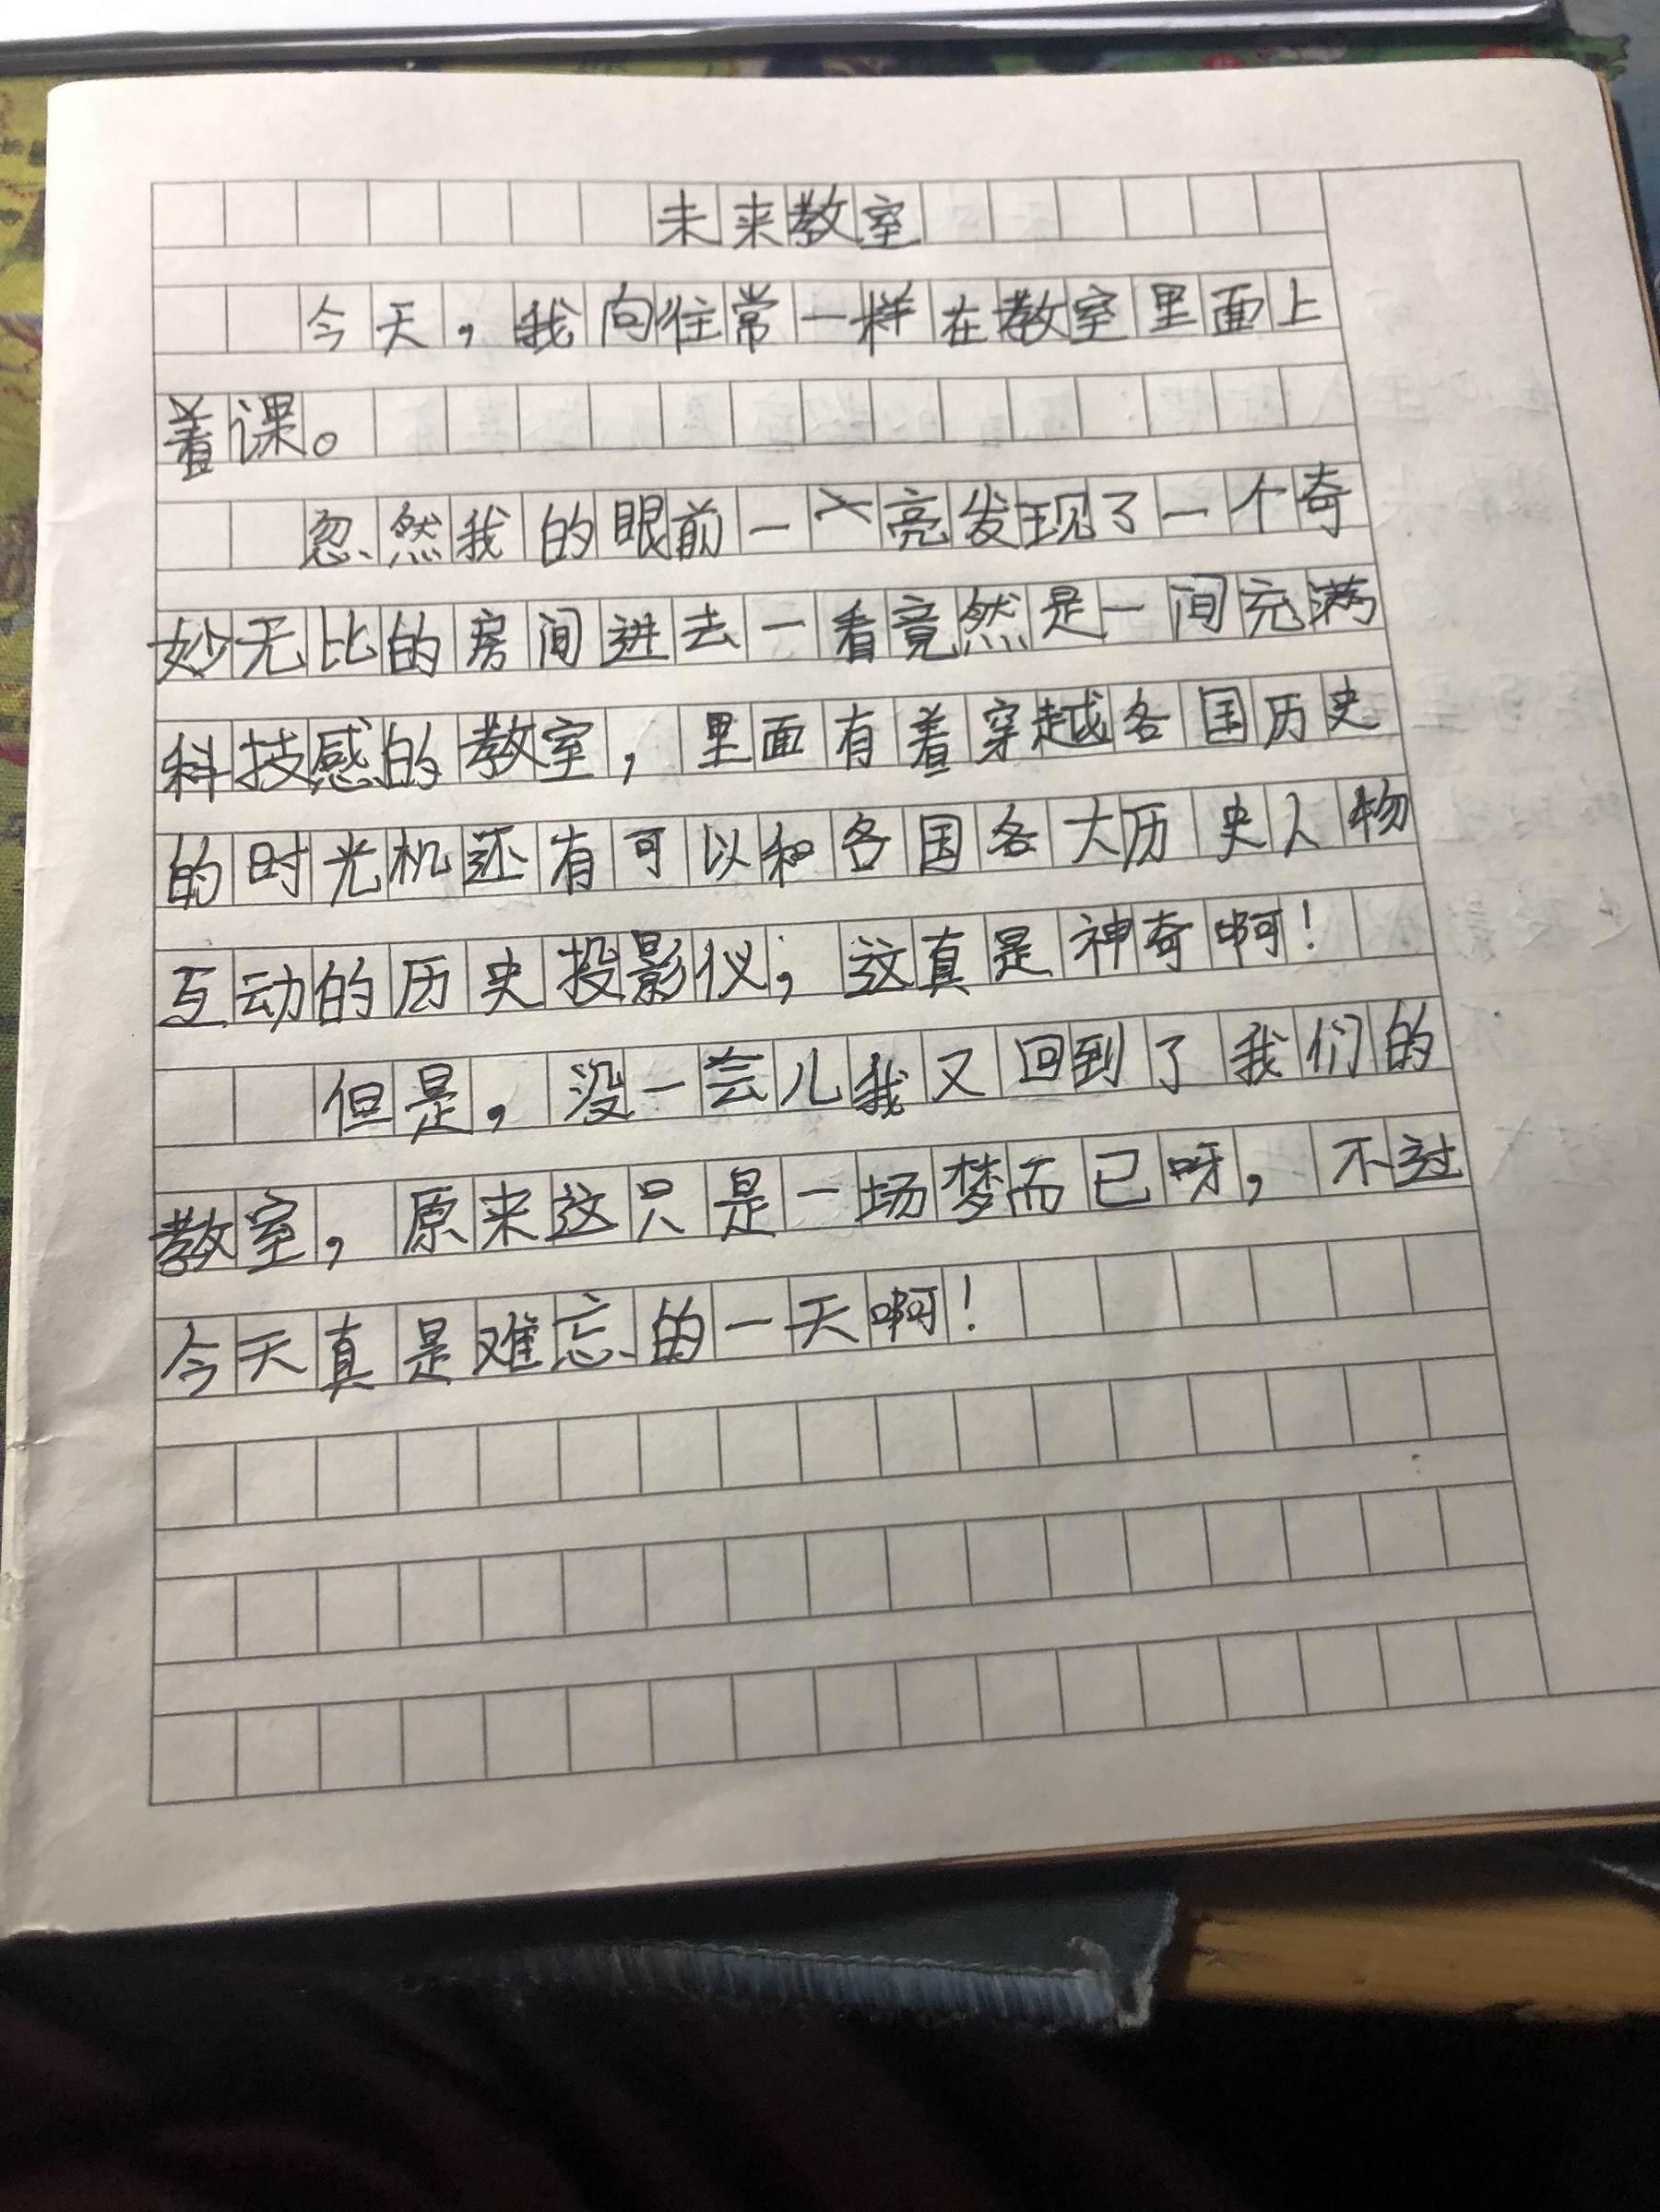 未来教室
今天，我向往常一样在教室里面上
着课。
忽然我的眼前一亮发现了一个奇
妙无比的房间进去一看竟然是一间充满
科技感的教室，里面有着穿越各国历史
的时光机还有可以和各国各大历史人物
互动的历史投影仪，这真是神奇啊！
但是，没一会儿我又回到了我们的
教室，原来这只是一场梦而已呀，不过
今天真是难忘的一天啊！